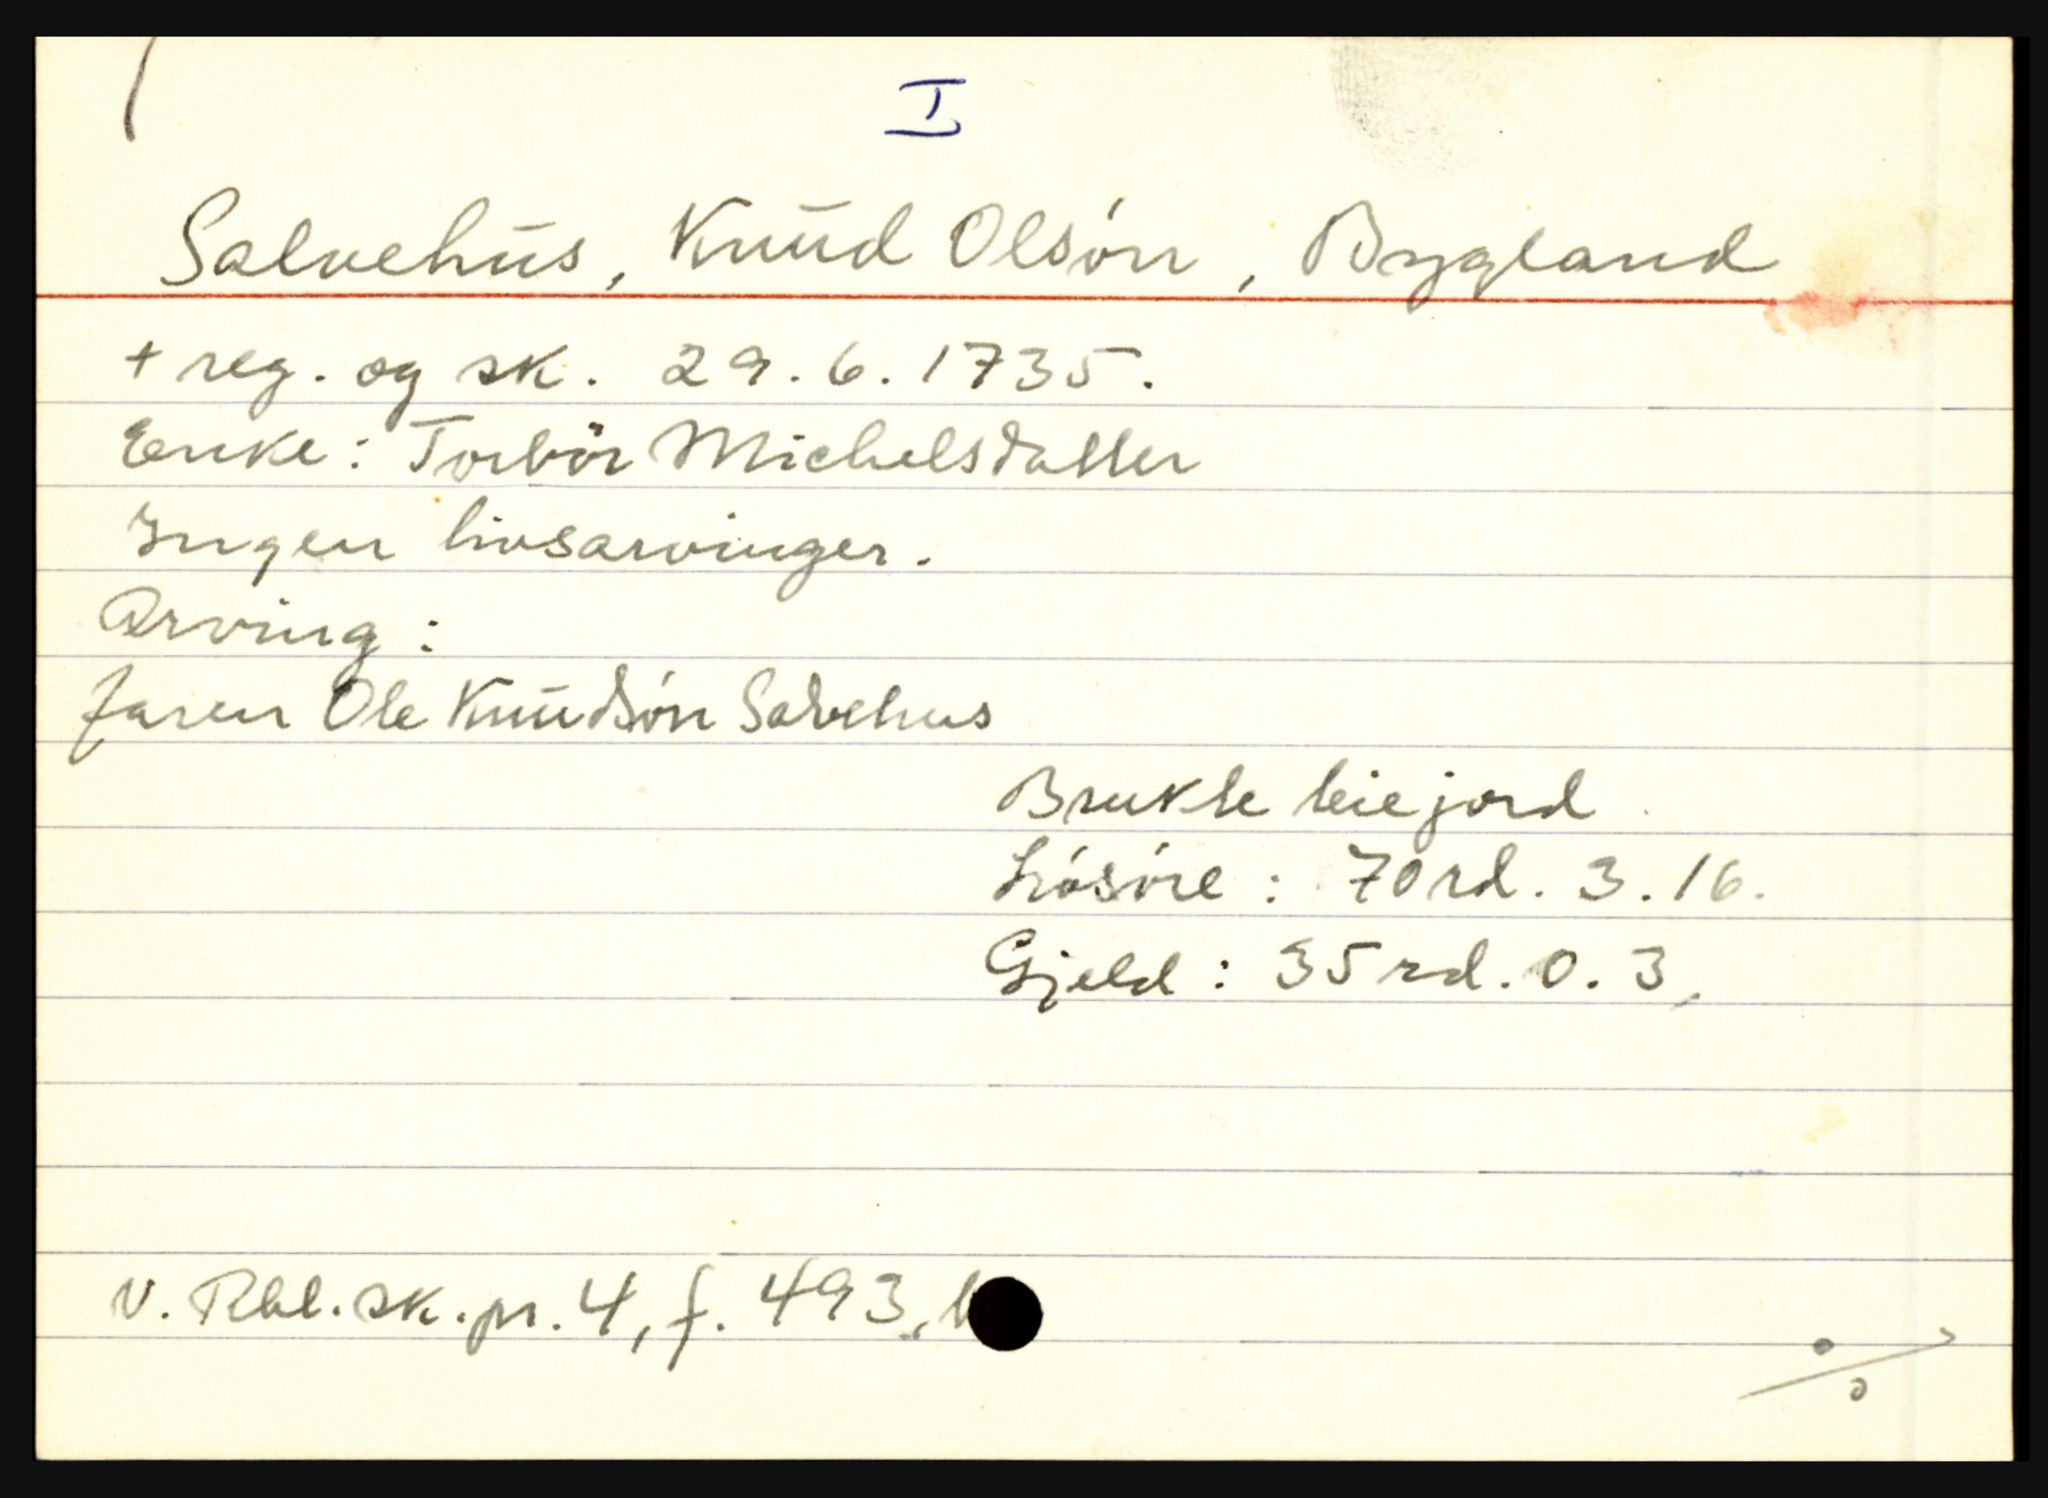 I
Salvehus, Knud Olsón, Bygland
+ reg. og sk. 29.6.1735.
Enke: Torbór Michelsdatter
Ingen livsarvinger.
Arving:
faren Ole Knudsón Salvehus
Brukte leiejord
Lósóre: 70 rd. 3. 16.
Gjeld: 35 rd. 0. 3,
v. Rbl. sk. pr. 4, f. 493, b